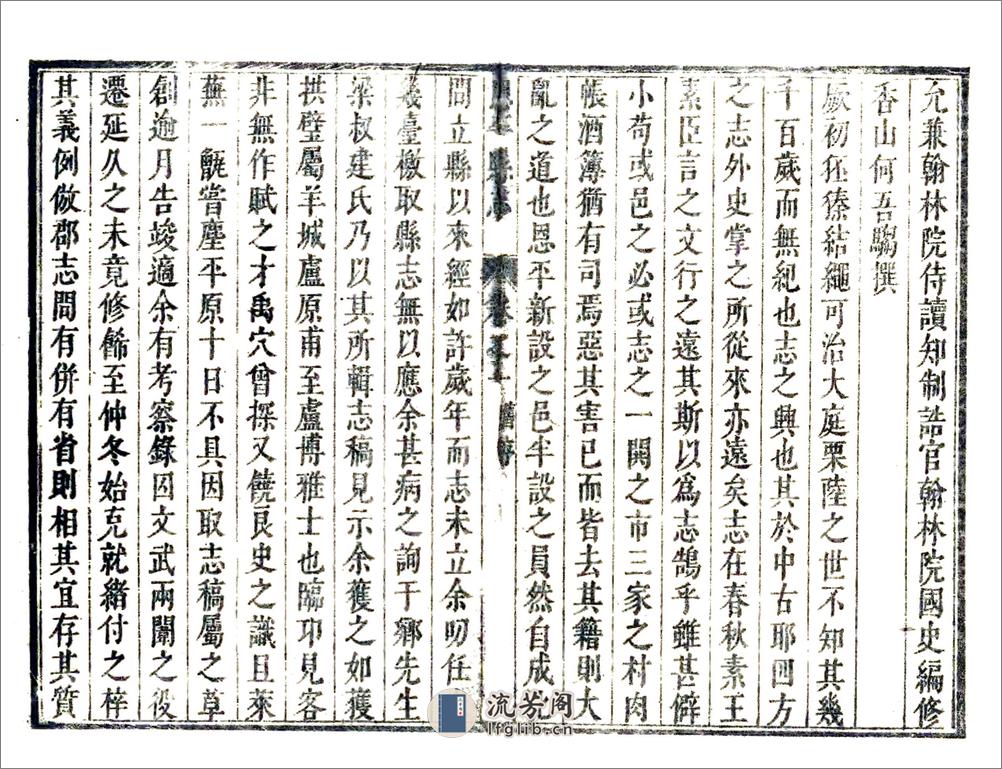 允兼翰林院侍讀知制誥官翰林院國史編修
香山何吾騶撰
厥初狉獉結繩可治大庭栗陸之世不知其幾
千百歲而無紀也志之興也其於中古耶四方
之志外史掌之所從來亦遠矣志在春秋素王
素臣言之文行之遠其斯以爲志鵠乎雖甚僻
小苟或邑之必或志之一鬨之市三家之村肉
帳酒簿猶有司焉惡其害已而皆去其籍則大
亂之道也恩平新設之邑半設之員然自成
縣志
舊序
問立縣以來經如許歲年而志未立余叨任
義臺檄取縣志無以應余甚病之詢于鄉先生
梁叔建氏乃以其所輯志稿見示余獲之如獲
拱璧屬羊城盧原甫至盧博雅士也臨邛見客
非無作賦之才禹穴曾探又饒良史之識且萊
蕪一甑嘗塵平原十日不具因取志稿屬之草
創逾月告竣適余有考察錄囚文武兩闈之役
遷延久之未竟修餙至仲冬始克就緒付之梓
其義例倣郡志間有併有省則相其宜存其質
流芳阁
lfglib.cn